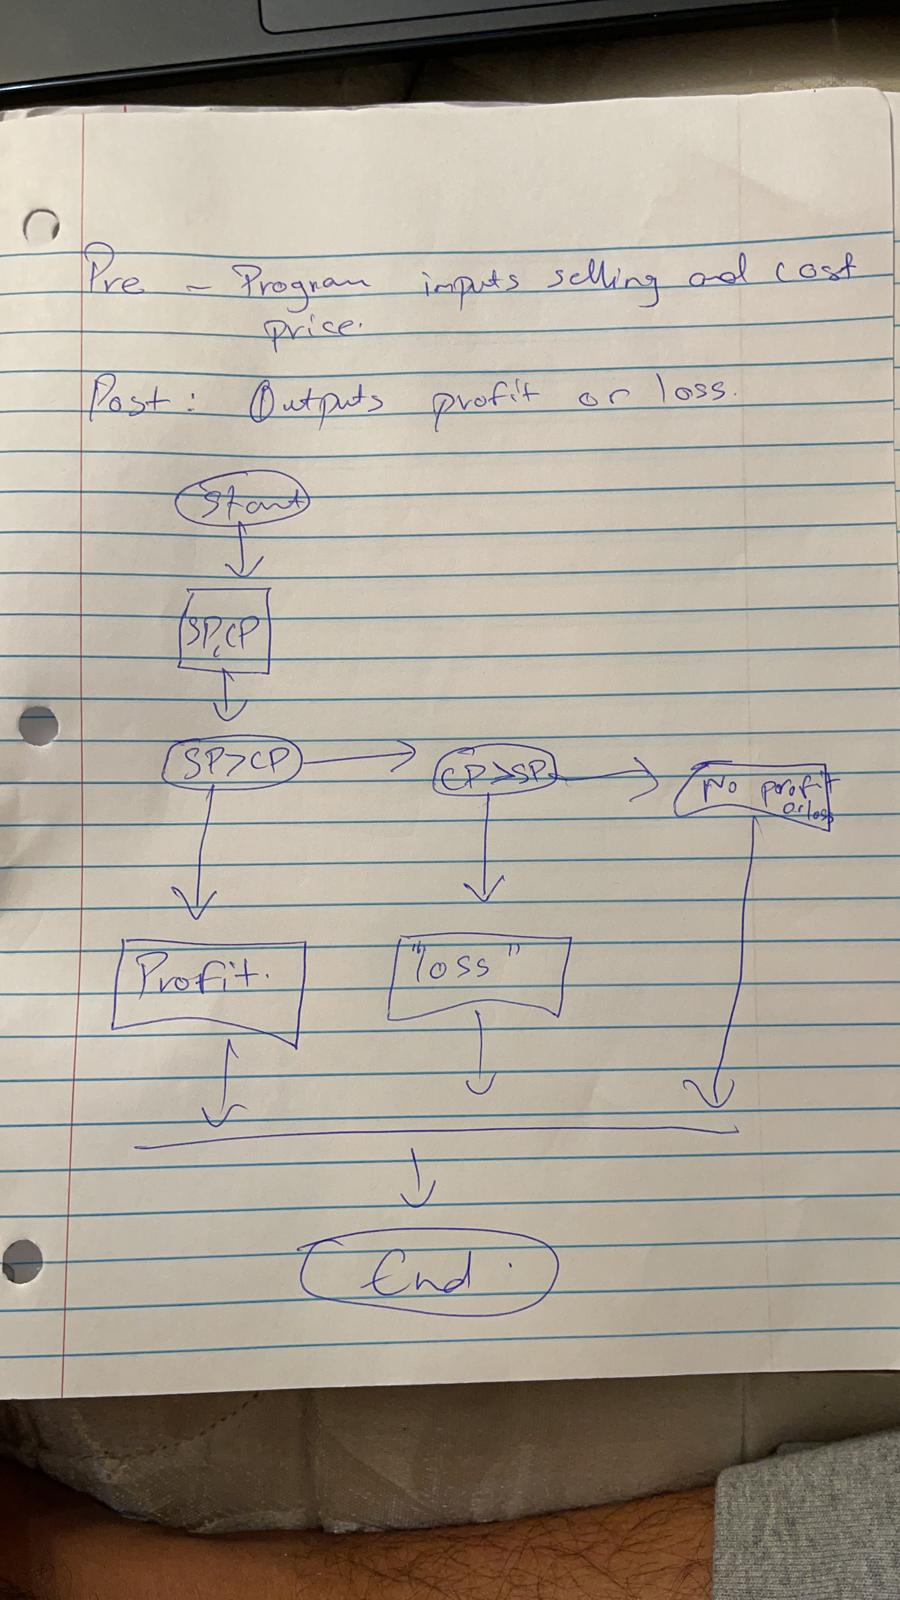 Pre - Program inputs selling and cost
price.
Post: Outputs profit or loss.
Start
SP, CP
SP>CP
CP>SP
No profit
or loss
Profit.
"loss"
End.